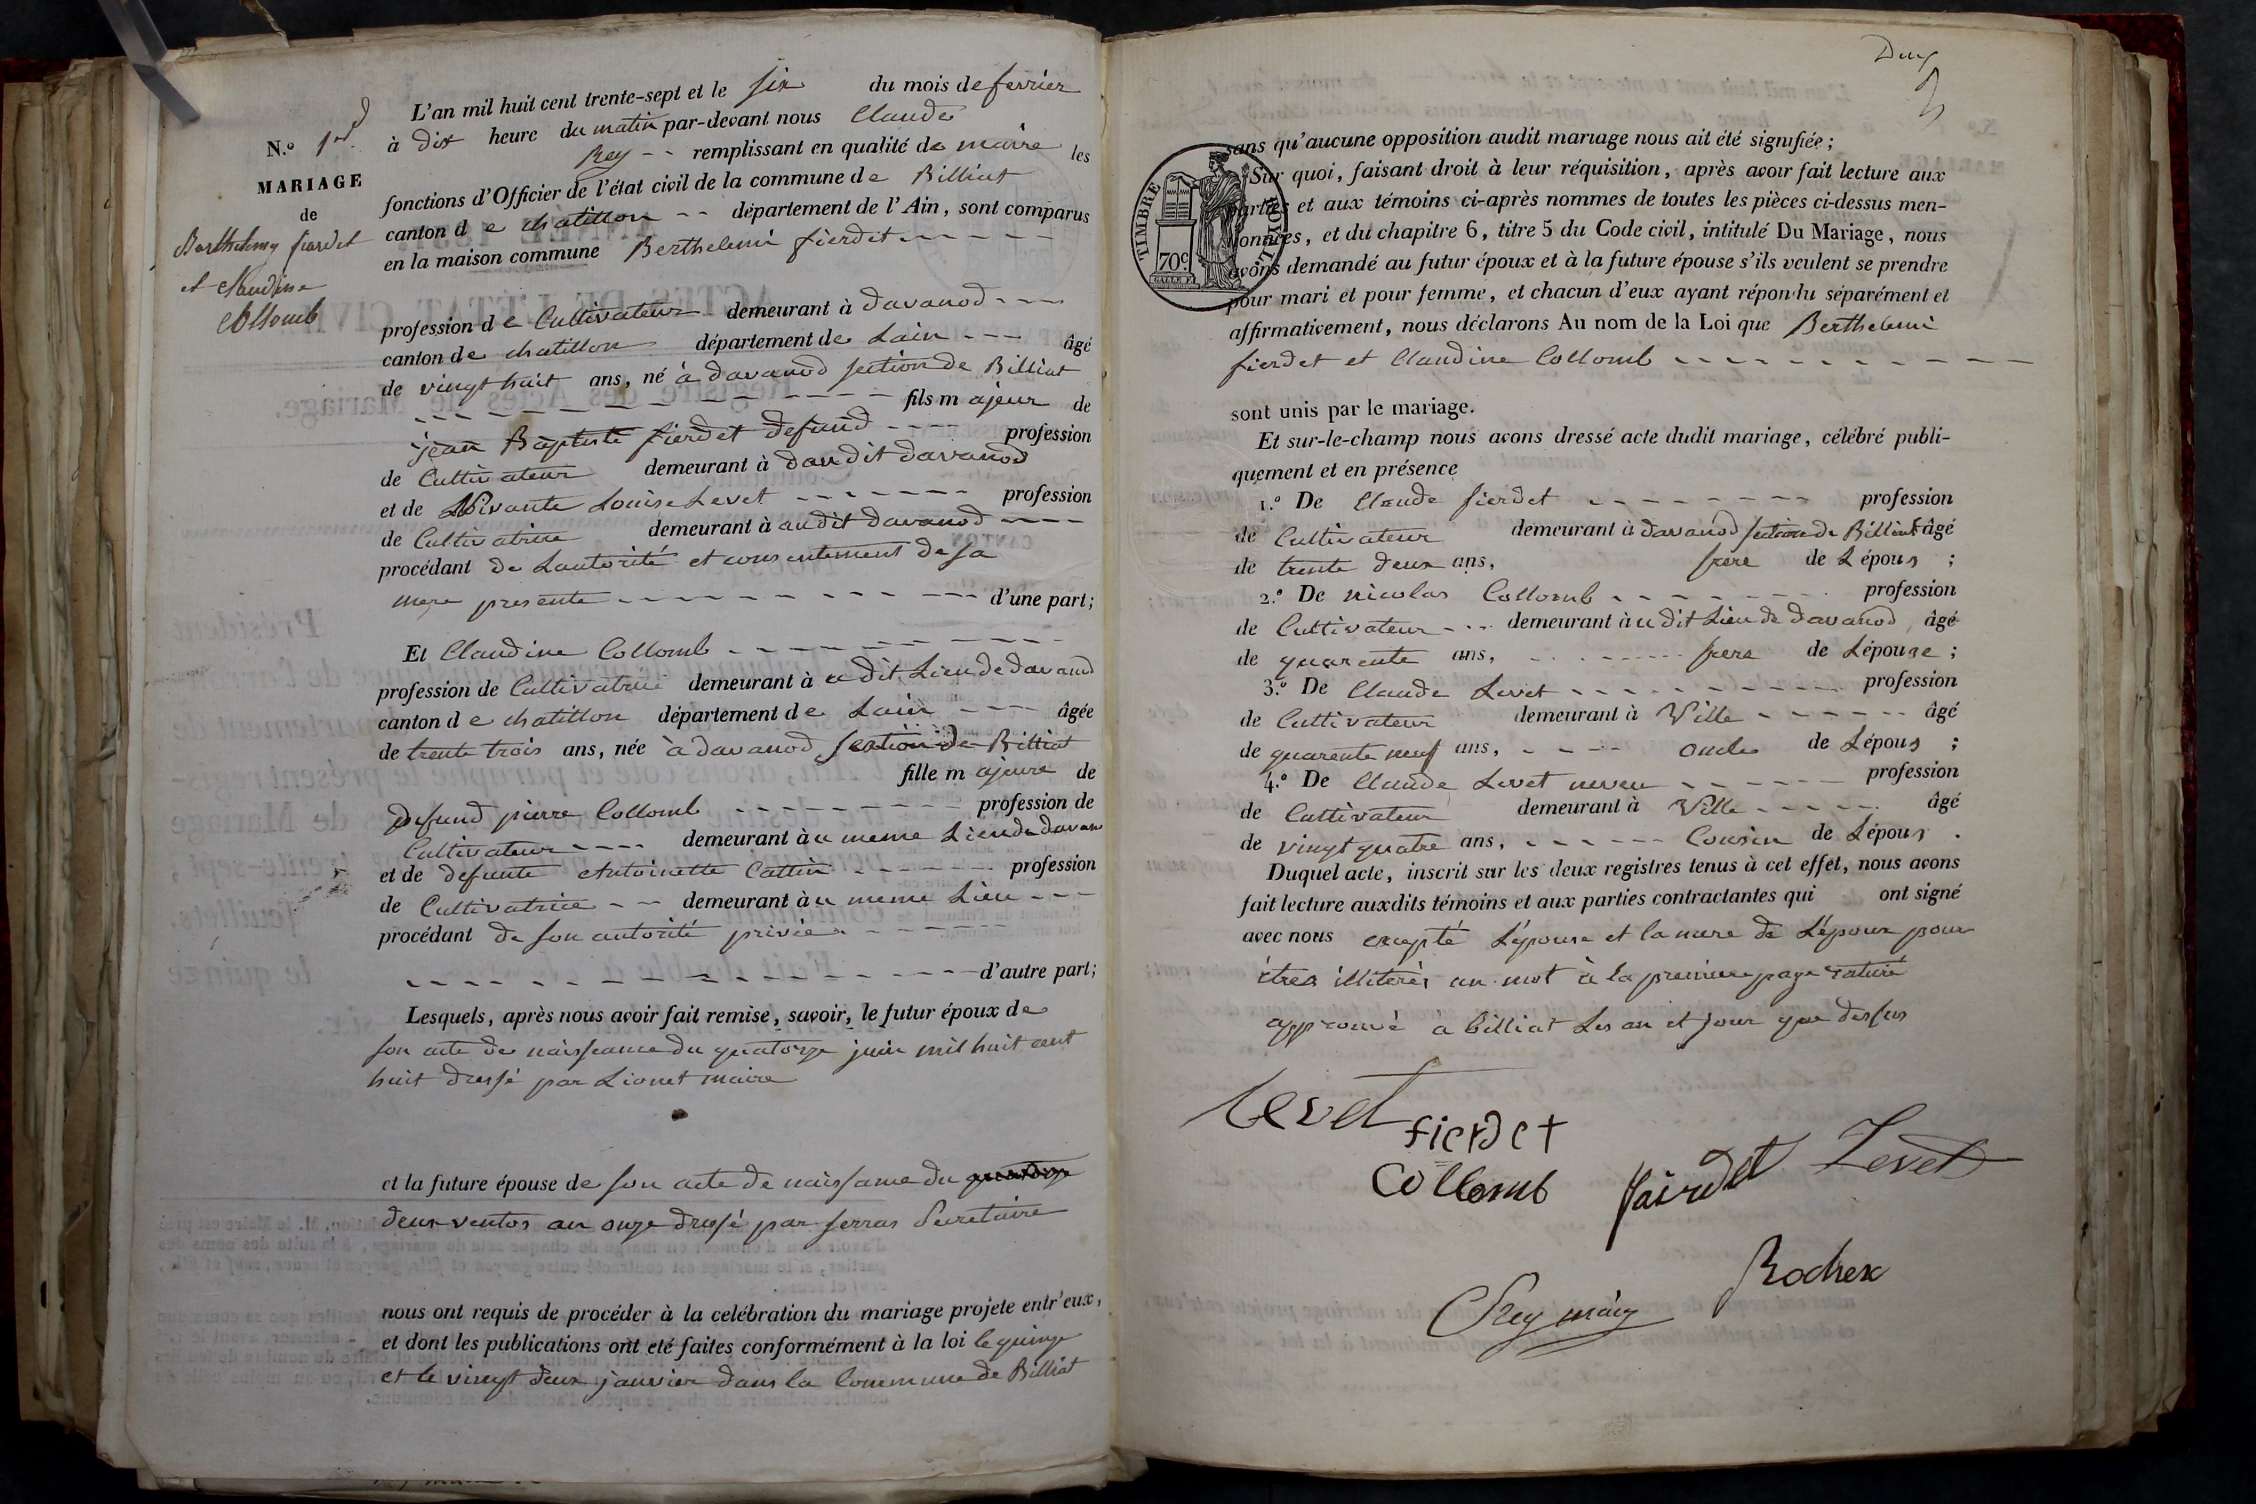 N.º 1er
MARIAGE
de
Barthelemy fierdet
et Claudine
Collomb
L'an mil huit cent trente-sept et le six du mois de fevrier
à dix heure du matin par-devant nous Claude
Rey -- remplissant en qualité de maire les
fonctions d'Officier de l'état civil de la commune de Billiat
canton de chatillon -- département de l'Ain, sont comparus
en la maison commune Berthelemi fierdet
profession de Cultivateur demeurant à davanod
canton de chatillon département de Lain --- âgé
de vingt huit ans, né à davanod section de Billiat
fils majeur de
jean Baptiste fierdet defund ---- profession
de Cultivateur demeurant à dau dit davanod
et de Vivante Louise Levet profession
de Cultivatrice demeurant à audit davanod
procédant de Lautorité et consentement de sa
mere presente d'une part;
Et Claudine Collomb
profession de Cultivatrice demeurant à u dit Lieu de davanod
canton de chatillon département de Lain ---- âgée
de trente trois ans, née à davanod section de Billiat
fille majeure de
defund pierre Collomb profession de
Cultivateur ---- demeurant àu meme Lieu de davan
et de defunte Antoinette Cattin profession
de Cultivatrice -- demeurant àu meme Lieu ---
procédant de son autorité privée
d'autre part;
Lesquels, après nous avoir fait remise, savoir, le futur époux de
son acte de naissance du quatorze juin mil huit cent
huit dressé par Lionet maire
et la future épouse de son acte de naissance du quatorze
deux ventos an onze dressé par serras Secretaire
nous ont requis de procéder à la celébration du mariage projete entr'eux,
et dont les publications ont eté faites conformément à la loi le quinze
et le vingt deux janvier dans la Commune de Billiat
Deux
2
TIMBRE ROYAL
70 c.
sans qu'aucune opposition audit mariage nous ait été signifiée;
Sur quoi, faisant droit à leur réquisition, après avoir fait lecture aux
parties et aux témoins ci-après nommes de toutes les pièces ci-dessus men-
tionnées, et du chapitre 6, titre 5 du Code civil, intitulé Du Mariage, nous
avons demandé au futur époux et à la future épouse s'ils veulent se prendre
pour mari et pour femme, et chacun d'eux ayant répondu séparément et
affirmativement, nous déclarons Au nom de la Loi que Berthelemi
fierdet et Claudine Collomb
sont unis par le mariage.
Et sur-le-champ nous avons dressé acte dudit mariage, célébré publi-
quement et en présence
1.º De Claude fierdet profession
de Cultivateur demeurant à davanod section de Billiat âgé
de trente deux ans, frere de Lépoux ;
2.º De nicolas Collomb profession
de Cultivateur --- demeurant àu dit Lieu de davanod, âgé
de quarente ans, frere de Lépouse ;
3.º De Claude Levet profession
de Cultivateur demeurant à Ville âgé
de quarente neuf ans, oncle de Lépoux ;
4.º De Claude Levet neveu profession
de Cultivateur demeurant à Ville âgé
de vingt quatre ans, Cousin de Lépoux .
Duquel acte, inscrit sur les deux registres tenus à cet effet, nous avons
fait lecture auxdits témoins et aux parties contractantes qui ont signé
avec nous excepté Lépouse et la mere de Lépoux pour
êtres illiterés un mot à la premiere page raturé
approuvé à billiat Les an et jour que dessus
Levet
fierdet
Collomb
fairdet
Levet
Rochex
CRey maire